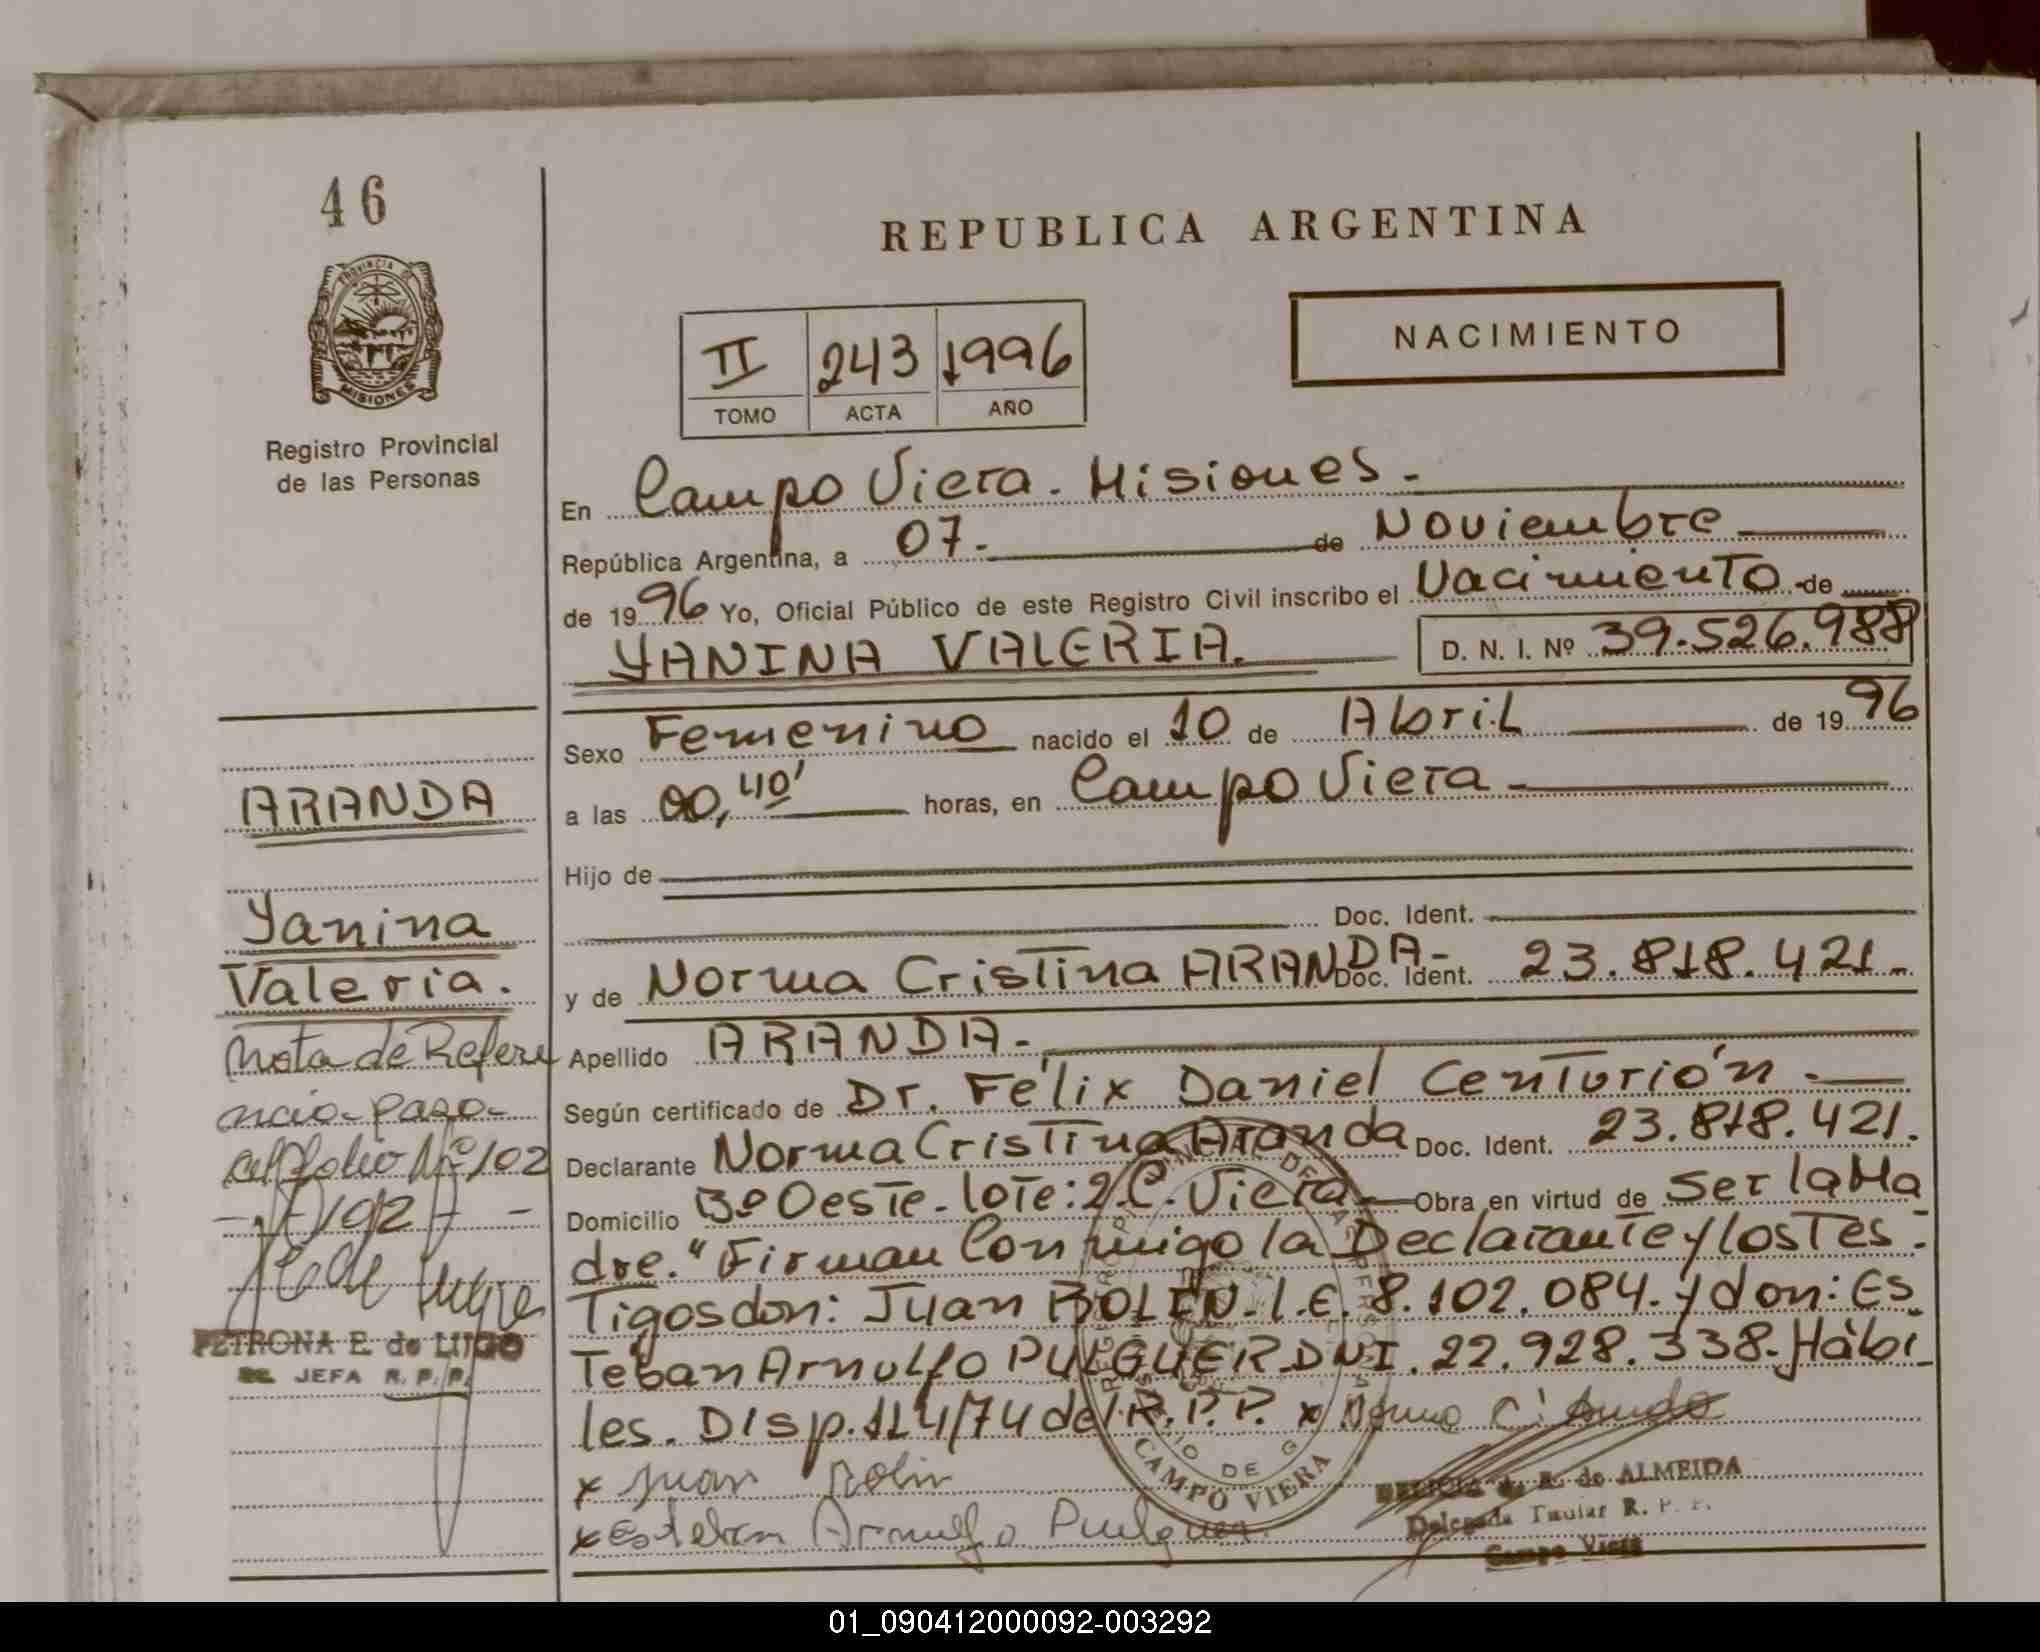 46
PROVINCIA DE
MISIONES
Registro Provincial
de las Personas
REPUBLICA ARGENTINA
II 243 1996
TOMO ACTA AÑO
NACIMIENTO
En Campo Viera. Misiones.-
República Argentina, a 07.- de Noviembre
de 1996 Yo, Oficial Público de este Registro Civil inscribo el Nacimiento de
YANINA VALERIA. D. N. I. Nº 39.526.988
Sexo Femenino nacido el 10 de Abril de 1996
a las 00,40' horas, en Campo Viera-
Hijo de
Doc. Ident.
y de Norma Cristina ARANDA- Doc. Ident. 23.818.421.-
Apellido ARANDA.-
Según certificado de Dr. Félix Daniel Centurión.-
Declarante Norma Cristina Aranda Doc. Ident. 23.818.421.
Domicilio B.º Oeste-lote:2 C. Viera- Obra en virtud de ser la Ma
dre." Firman Conmigo la Declarante y los Tes-
Tigos don: Juan ROLIN-L.E. 8.102.084.-y don: Es
Teban Arnulfo PULGUER DNI.22.928.338.-Hàbi
les. Disp.114/74 del R.P.P. x Norma C. Aranda
x Juan Rolin
x Esteban Arnulfo Pulguer.
CAMPO VIERA
de ALMEIDA
Delegada Titular R. P. P.
Campo Viera
ARANDA
Yanina
Valeria.
Nota de Refere
ncia-pasa-
al folio Nº 102
PETRONA E. de LUGO
JEFA R. P. P.
01_090412000092-003292